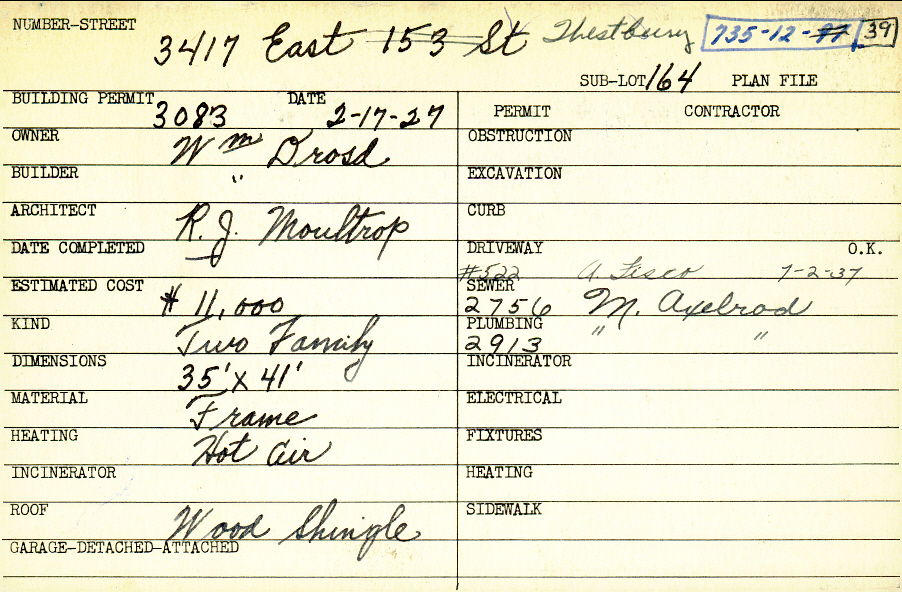 NUMBER-STREET 3417 East 153 St 735-12-77 39
SUB-LOT 164 PLAN FILE
BUILDING PERMIT 3083 DATE 2-17-27 PERMIT CONTRACTOR
OWNER Wm Drosd OBSTRUCTION
BUILDER " EXCAVATION
ARCHITECT R. J. Moultrop CURB
DATE COMPLETED DRIVEWAY O.K.
#522 A Fisco 7-2-37
ESTIMATED COST $ 11,000 SEWER 2756 M. Axelrod
KIND Two Family PLUMBING 2913 " "
DIMENSIONS 35' x 41' INCINERATOR
MATERIAL Frame ELECTRICAL
HEATING Hot Air FIXTURES
INCINERATOR HEATING
ROOF Wood Shingle SIDEWALK
GARAGE-DETACHED-ATTACHED